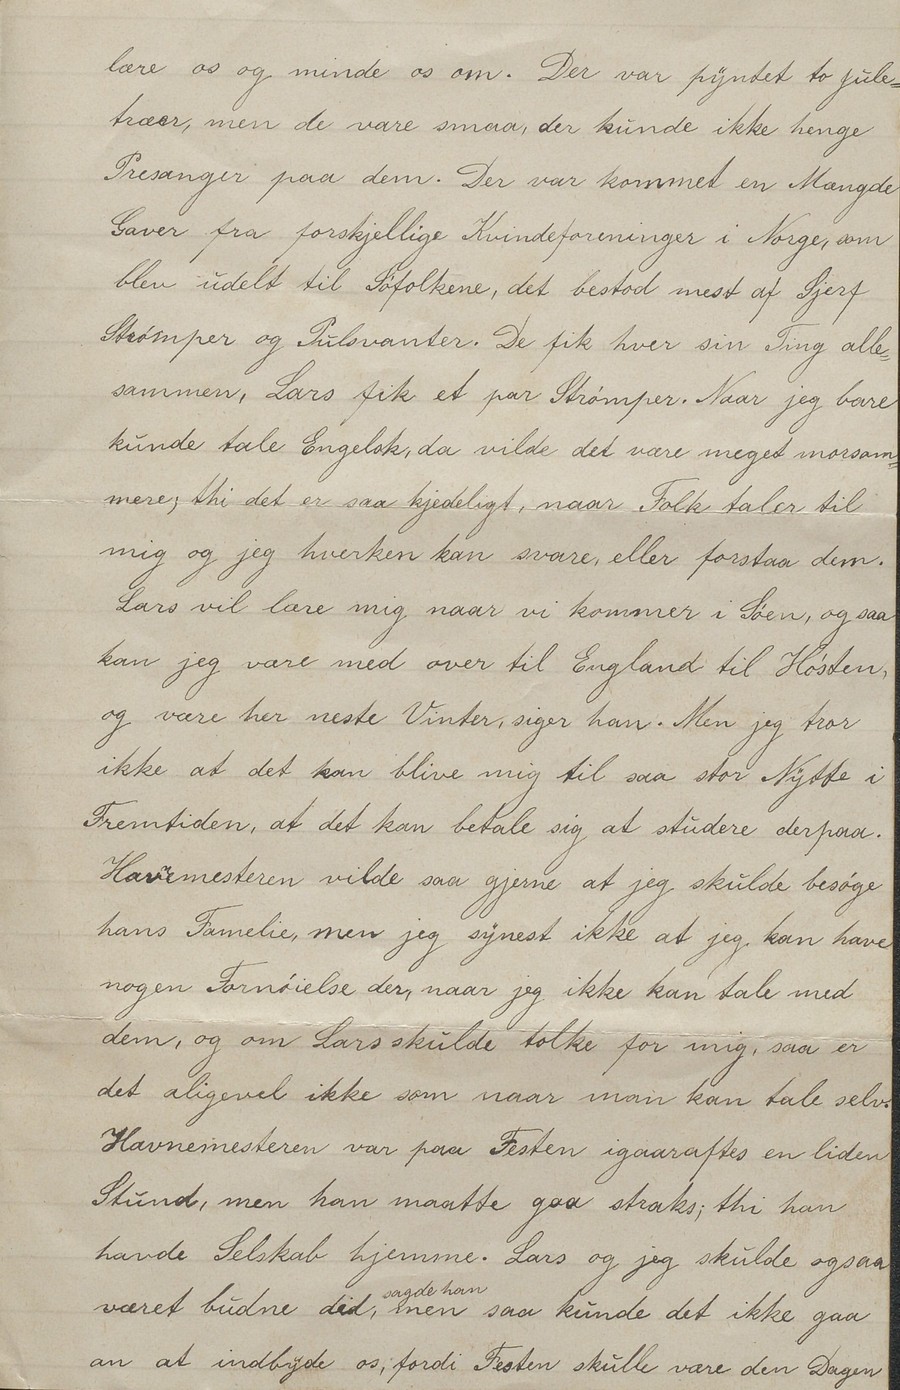 lære os og minde os om. Der var pyntet to Jule=
træer, men de vare smaa, der kunde ikke henge
Presanger paa dem. Der var kommet en Mængde
Gaver fra forskjellige Kvindeforeninger i Norge, som
blev udelt til Söfolkene, det bestod mest af Sjerf
Strómper og Pulsvanter. De fik hver sin Ting alle=
sammen, Lars fik et par Strómper. Naar jeg bare
kunde tale Engelsk, da vilde det være meget morsom=
mere; thi det er saa kjedeligt, naar Folk taler til
mig og jeg hverken kan svare, eller forstaa dem.
Lars vil lære mig naar vi kommer i Sóen, og saa
kan jeg være med over til England til Hósten,
og være her neste Vinter, siger han. Men jeg tror
ikke at det kan blive mig til saa stor Nytte i
Fremtiden, at det kan betale sig at studere derpaa.
Havnemesteren vilde saa gjerne at jeg skulde besóge
hans Famelie, men jeg synest ikke at jeg kan have
nogen Fornóielse der, naar jeg ikke kan tale med
dem, og om Lars skulde tolke for mig, saa er
det aligevel ikke som naar man kan tale selv.
Havnemesteren var paa Festen igaaraftes en liden
Stund, men han maatte gaa straks; thi han
havde Selskab hjemme. Lars og jeg skulde ogsaa
sagde han
været budne did, men saa kunde det ikke gaa
an at indbyde os, fordi Festen skulle være den Dagen